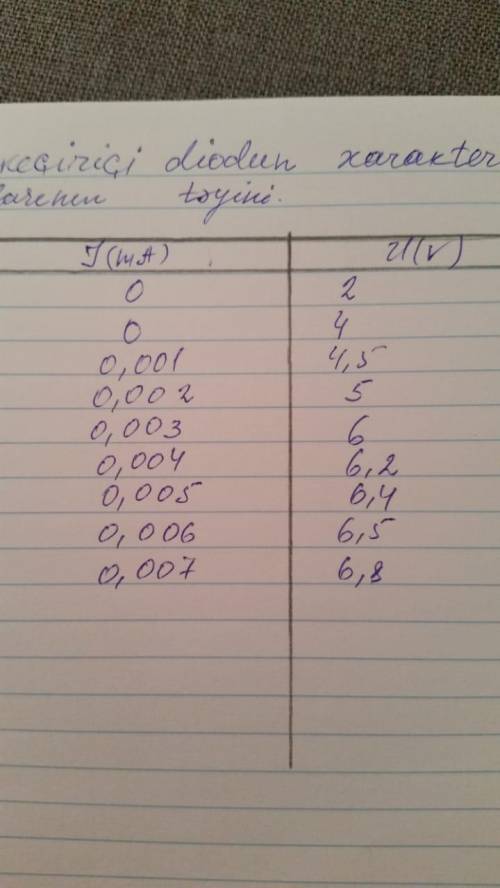 keçiriçi diodun xarakter
larının təyini.
I(mA) U(V)
0 2
0 4
0,001 4,5
0,002 5
0,003 6
0,004 6,2
0,005 6,4
0,006 6,5
0,007 6,8